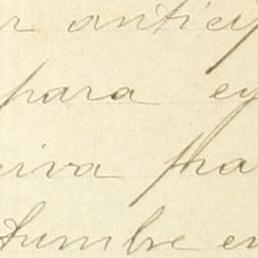 r antici
para ey
eiva fra
tumbre en